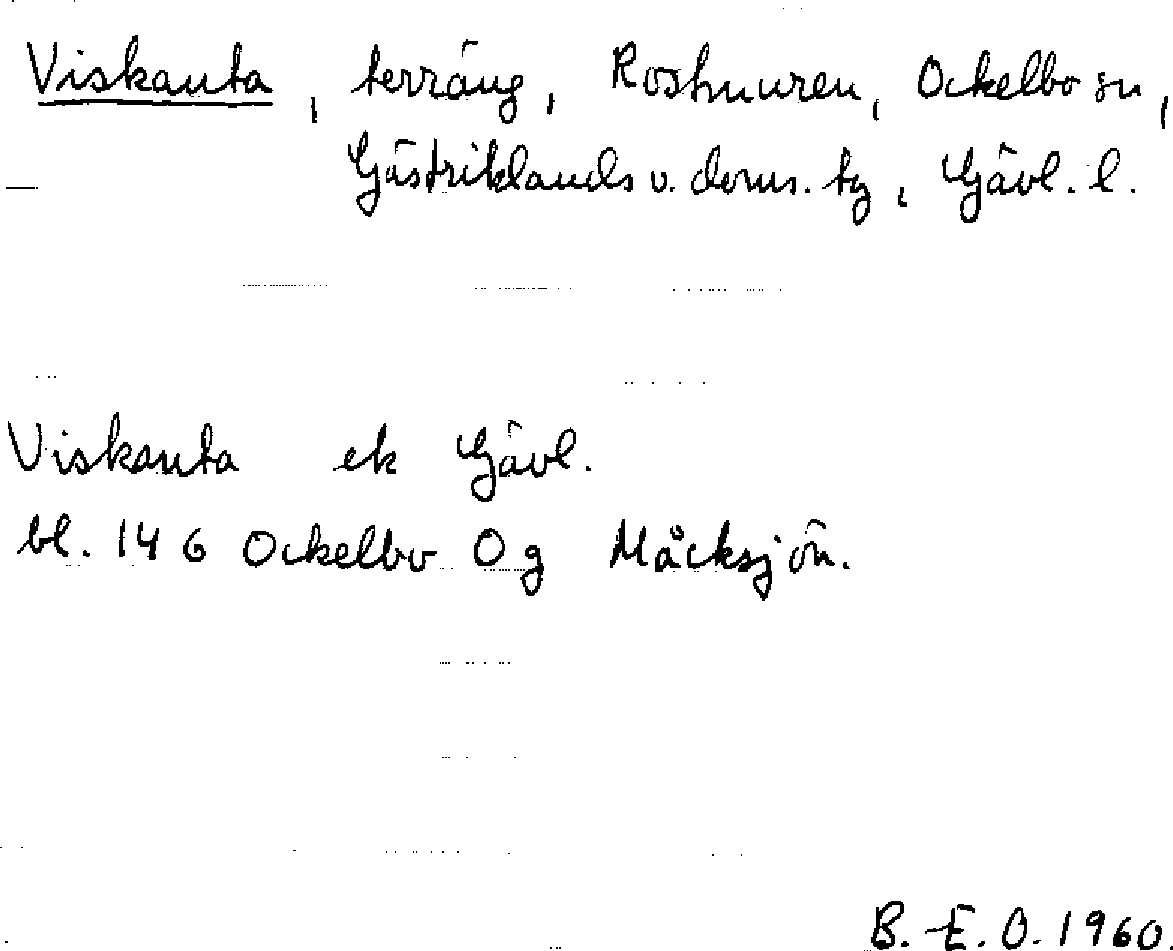 Viskanta, terräng, Roshmuren, Ockelbo sn,
Gästriklands v. doms. tg, Gävl. l.
Viskanta ek Gävl.
bl. 146 Ockelbo 0 g Måcksjön.
B. E. O. 1960.